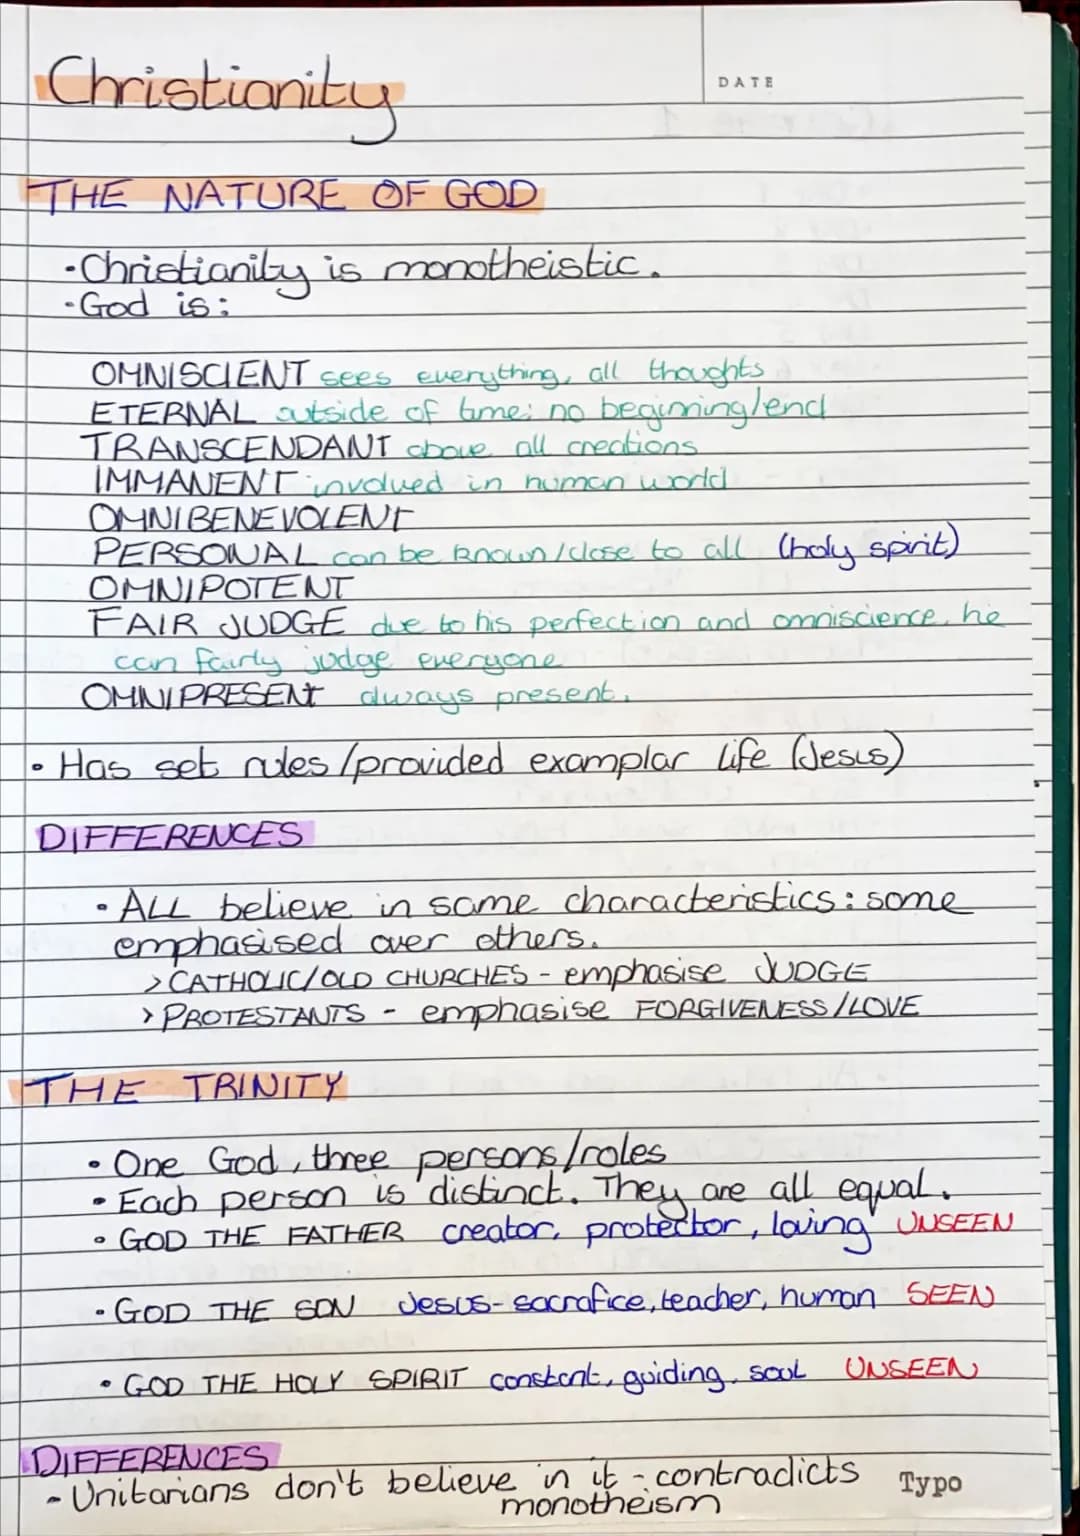 Christianity
DATE
THE NATURE OF GOD
· Christianity is monotheistic.
· God is:
OMNISCIENT sees everything, all thoughts
ETERNAL outside of time: no beginning/end
TRANSCENDANT above all creations
IMMANENT involved in human world
OMNIBENEVOLENT
PERSONAL can be known/close to all (holy spirit)
OMNIPOTENT
FAIR JUDGE due to his perfection and omniscience, he
can fairly judge everyone
OMNIPRESENT always present.
• Has set rules/provided examplar life (Jesus)
DIFFERENCES
• ALL believe in same characteristics: some
emphasised over others.
> CATHOLIC/OLD CHURCHES - emphasise JUDGE
> PROTESTANTS - emphasise FORGIVENESS/LOVE
THE TRINITY
• One God, three persons/roles
• Each person is distinct. They are all equal.
• GOD THE FATHER creator, protector, loving UNSEEN
• GOD THE SON Jesus- sacrafice, teacher, human SEEN
• GOD THE HOLY SPIRIT constant, guiding, soul UNSEEN
DIFFERENCES
- Unitarians don't believe in it - contradicts
monotheism
Typo